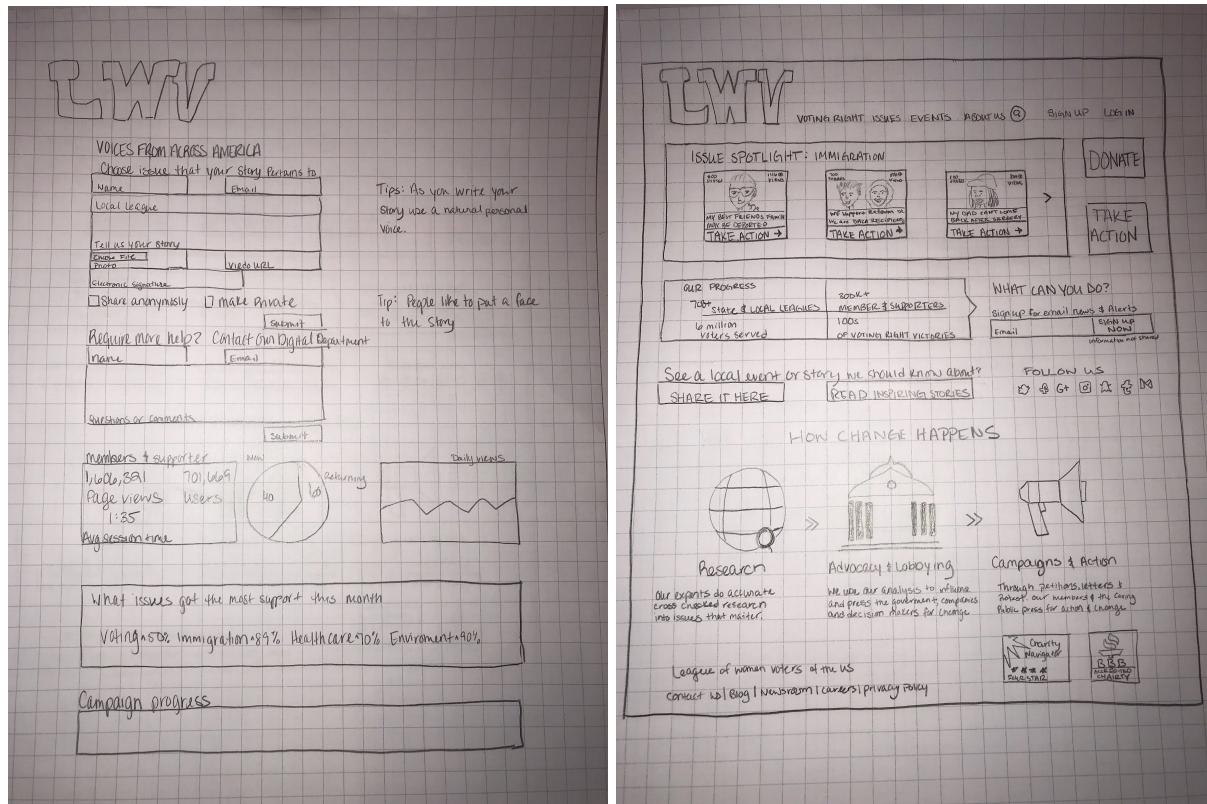 LWV
VOICES FROM ACROSS AMERICA
Choose issue that your story Pertains to
Name
Email
Local League
Tell us your story
Choose File
Photo
Viedo URL
Electronic Signature
Share anonymosly
make Private
Submit
Tips: As you write your
Story use a natural personal
Voice.
Tip: People like to put a face
to the Story
Require more help? Contact Our Digital Department
name
Email
Questions or comments
Submit
members & supporter
1,606,391 701,669
Page views users
1:35
Avg session time
New
Returning
40
60
Daily views
What issues got the most support this month
Voting 50% Immigration 89% Healthcare 70% Enviroment 90%
Campaign progress
LWV
VOTING RIGHT ISSUES EVENTS ABOUT US SIGN UP LOG IN
ISSUE SPOTLIGHT: IMMIGRATION
DONATE
TAKE
ACTION
VIEWS
MY BEST FRIENDS FAMILY
MAY BE DEPORTED
TAKE ACTION →
VIEWS
TAKE ACTION →
VIEWS
MY DAD CAN'T COME
BACK AFTER SURGERY
TAKE ACTION →
>
OUR PROGRESS
700+
State & LOCAL LEAGUES
300K+
MEMBER & SUPPORTERS
6 million
voters served
100s
OF VOTING RIGHT VICTORIES
WHAT CAN YOU DO?
Sign up for email news & Alerts
Email
SIGN UP
NOW
information not shared
See a local event or story we should know about?
SHARE IT HERE
READ INSPIRING STORIES
FOLLOW US
G+
HOW CHANGE HAPPENS
Research
Our experts do accurate
cross checked research
into issues that matter.
Advocacy & Lobbying
We use our analysis to influence
and press the goverment, companies
and decision makers for change
Campaigns & Action
Through petitions, letters &
Protest our members & the caring
Public press for action & change
League of women voters of the US
Contact us | Blog | Newsroom | careers | privacy Policy
Charity
Navigator
FOUR STAR
BBB
ACCREDITED
CHAIRTY